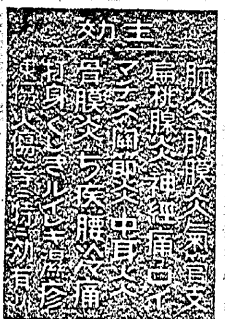 主効
肺炎肋膜炎氣管支
扁桃腺炎神経痛ロイ
マチス関節炎中耳炎
骨膜炎ぢ疾腰の痛
打身くじきルイレキ湿疹
火傷等 効有